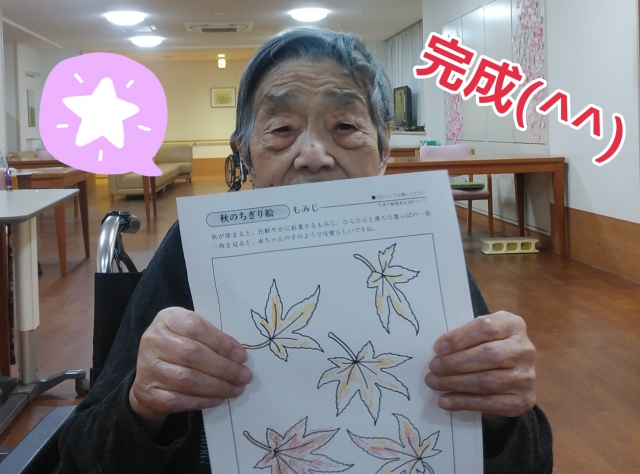 完成(^^)
秋のちぎり絵
もみじ
秋が深まると、色鮮やかに紅葉するもみじ、ひらひらと落ちた葉っぱの一枚
一枚を見ると、赤ちゃんの手のようで可愛らしいですね。